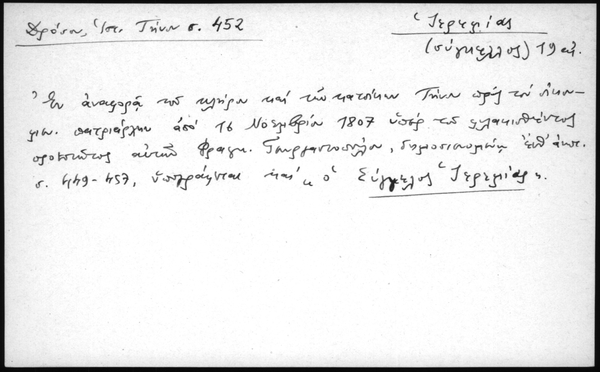 Δρόσου, Ἱστ. Τήνου σ. 452
Ἱερεμίας
(σύγκελλος) 19 αἰ.
Ἐν ἀναφορᾷ τοῦ κλήρου καὶ τῶν κατοίκων Τήνου πρὸς τὸν Οἰκου-
μεν. πατριάρχην ἀπὸ 16 Νοεμβρίου 1807 ὑπὲρ τοῦ φυλακισθέντος
αὐτῶν Φραγκ. , δημοσιευομένῃ
σ. 449-457, ὑπογράφεται καὶ " ὁ Σύγκελος Ἱερεμίας ".